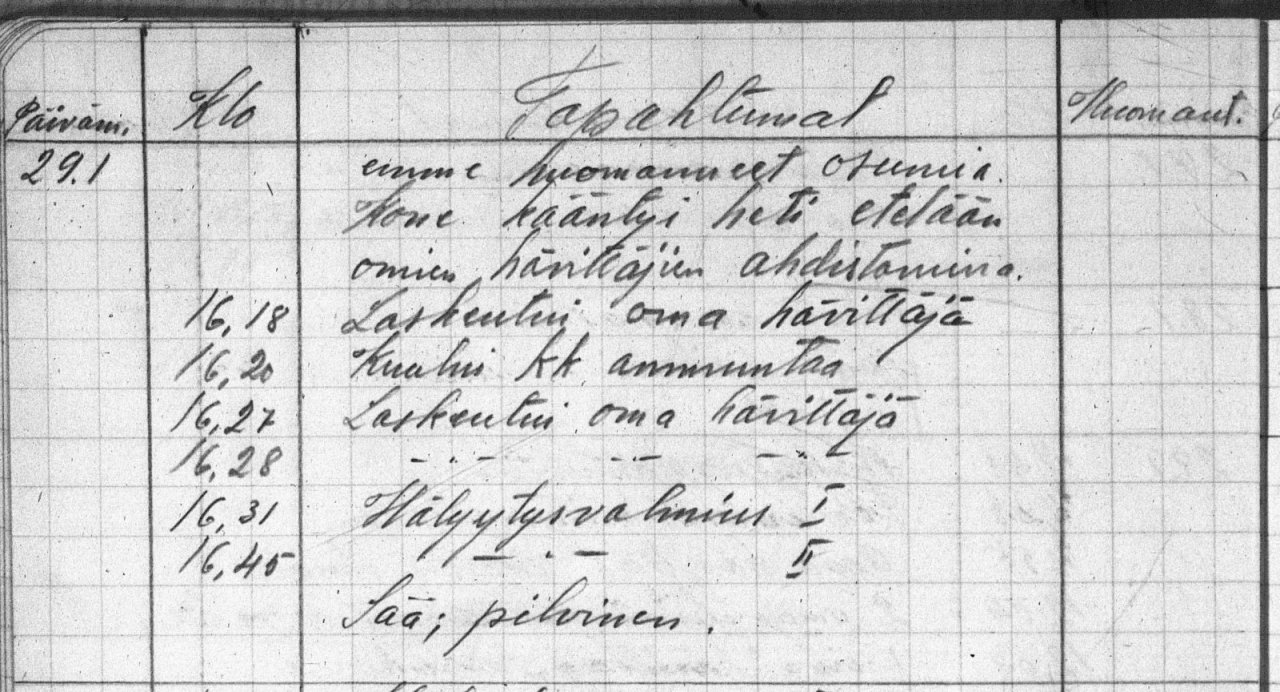 Päiväm. Klo Tapahtumat Huomaut.
29.1 emme huomanneet osumia.
Kone kääntyi heti etelään
omien hävittäjien ahdistamina.
16,18 Laskeutui oma hävittäjä
16,20 Kuului kk ammuntaa
16,27 Laskeutui oma hävittäjä
16,28 -"- -"- -"-
16,31 Hälyytysvalmius I
16,45 -"- II
Sää; pilvinen.